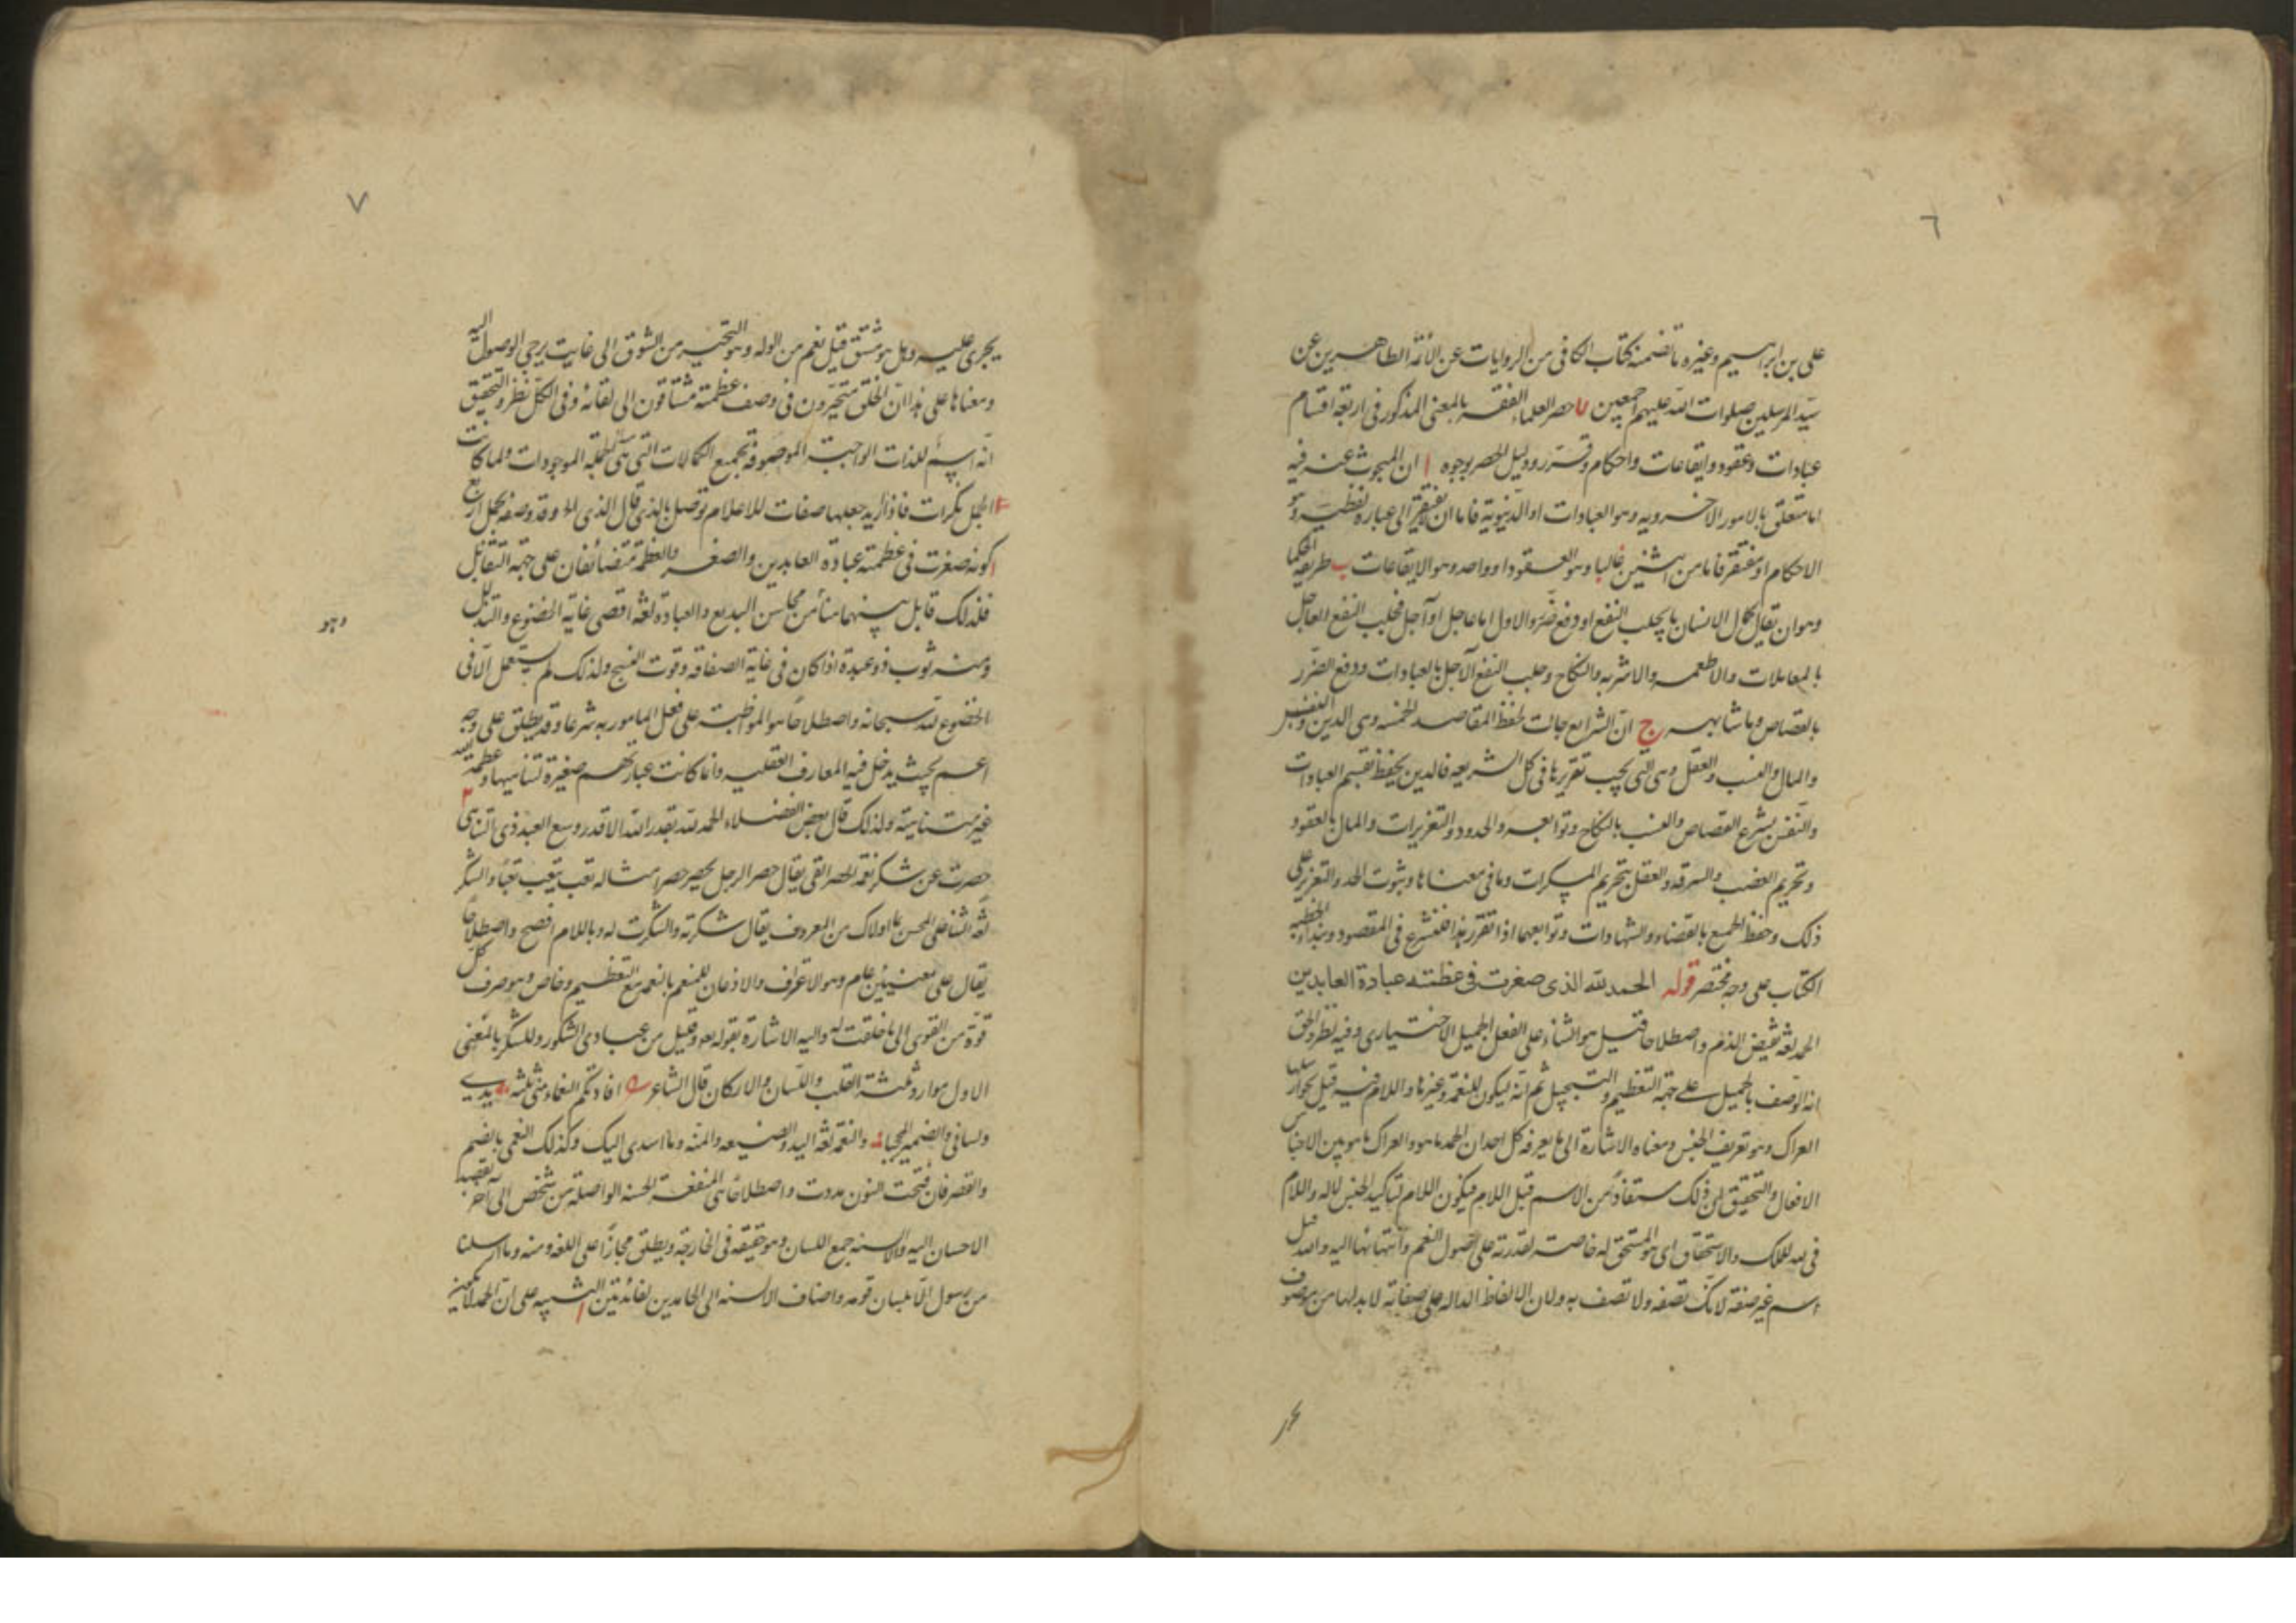 ٦
علی بن ابراهیم وغیره ما تضمنه کتاب الکافی من الروایات عن الائمة الطاهرین عن
سید المرسلین صلوات الله علیهم اجمعین حصر العلماء الفقه بالمعنی المذکور فی اربعة اقسام
عبادات وعقود وایقاعات واحکام وقرر ودلیل الحصر بوجوه ا ان المبحوث عنه فیه
اما متعلق بالامور الاخرویه وهو العبادات او الدنیویة فاما ان یفتقر الی عباره لفظیه وهو
الاحکام او مفتقر فاما من اثنین غالبا وهو العقود او واحد وهو الایقاعات ب طریقه الحکما
وهو ان یقال کمال الانسان ما یجلب النفع او دفع ضرر والاول اما عاجل او آجل فجلب النفع العاجل
بالمعاملات والاطعمه والاشربه والنکاح وجلب النفع الآجل بالعبادات ودفع الضرر
بالقصاص وما شابهه ج ان الشرایع جائت لحفظ المقاصد الخمسه وهی الدین والنفس
والمال والنسب والعقل وهی التی یجب تقریرها فی کل الشریعه فالدین یحفظ بقسم العبادات
والنفس بشرع القصاص والنسب بالنکاح وتوابعه والحدود والتعزیرات والمال بالعقود
وتحریم الغصب والسرقه والعقل بتحریم المسکرات وما فی معناها وثبوت الحد والتعزیر علی
ذلک وحفظ الجمیع بالقضاء والشهادات وتوابعهما اذا تقرر هذا فلنشرع فی المقصود ونبداء بخطبه
الکتاب علی وجه مختصر قوله الحمد لله الذی صغرت فی عظمته عبادة العابدین
الحمد لغة نقیض الذم واصطلاحا قیل هو الثناء علی الفعل الجمیل الاختیاری وفیه نظر والحق
انه الوصف بالجمیل علی جهة التعظیم والتبجیل ثم انه لیکون للنعمة وغیرها واللام فیه قیل کجواز ارسلها
العراک وهو تعریف الجنس ومعناه الاشارة الی ما یعرفه کل احد ان الحمد ما هو والعراک ما هو بین الاجناس
الافعال والتحقیق ان ذلک مستفاد من الاسم قبل اللام فیکون اللام لتاکید الجنس لا له واللام
فی لله للملک والاستحقاق ای هو المستحق له خاصه لقدرته علی اصول النعم وانتهائها الیه والله قیل
اسم غیر صفة لانک تصفه ولا تصف به ولان الالفاظ الداله علی صفاته لا بد لها من موصوف
یجر
٧
یجری علیه وهل هو مشتق قیل نعم من الوله وهو التحیر من الشوق الی غایت یرجی الوصول الیه
ومعناها علی هذا ان الخلق متحیرون فی وصف عظمته مشتاقون الی لقائه وفی الکل نظر والتحقیق
انه اسم للذات الواجبة الموصوفة بجمیع الکمالات التی هی الموجودات ولما کانت
الجمل نکرات فاذا ارید جعلها صفات للاعلام توصل بالذی قال الذی الخ وقد وصفه بجمل اربع
ا کونه صغرت فی عظمته عبادة العابدین والصغر والعظمة متضائفان علی جهة التقابل
فلذلک قابل بینهما هنا من محاسن البدیع والعبادة لغة اقصی غایة الخضوع والتذلل
ومنه ثوب ذو عبدة اذا کان فی غایة الصفاقه وقوت النسج ولذلک لم یستعمل الا فی
وهو
الخضوع لله سبحانه واصطلاحا هو المواظبة علی فعل المامور به شرعا وقد یطلق علی وجه
اعم بحیث یدخل فیه المعارف العقلیه وانما کانت عبادتهم صغیرة لتناهیها وعظمة الله
غیر متناهیته ولذلک قال بعض الفضلاء الحمد لله بقدر الله لا قدر وسع العبد ذی التناهی ٢
حصرت عن شکر نعمه الحصر العی یقال حصر الرجل یحصر حصرا مثاله تعب یتعب تعبا والشکر
لغة الثناء علی المحسن بما اولاک من المعروف یقال شکرته والشکرت له وباللام افصح واصطلاحا
یقال علی معنیین عام وهو الاعتراف والاذعان للمنعم بالنعمه مع التعظیم وخاص وهو صرف کل
قوة من القوی الی ما خلقت له والیه الاشارة بقوله تعه وقلیل من عبادی الشکور وللشکر بالمعنی
الاول موارد ثلثة القلب واللسان والارکان قال الشاعر افادتکم النعماء منی ثلثة یدی
ولسانی والضمیر المحجبا والنعمة لغة الید والصنیعه والمنه وما اسدی الیک وکذلک النعمی بالضم
والقصر فان فتحت النون مددت واصطلاحا هی المنفعة الحسنه الواصلة من شخص الی آخر بقصد
الاحسان الیه والالسنه جمع اللسان وهو حقیقه فی الجارحة ویطلق مجازا علی اللغه ومنه وما ارسلنا
من رسول الا بلسان قومه واضاف الالسنه الی الحامدین لفائدتین ا التنبیه علی ان الحمد